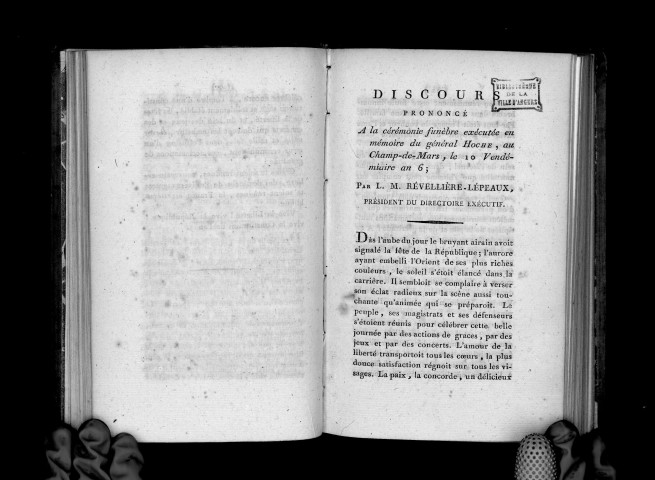 DISCOURS
BIBLIOTHÈQUE
DE LA
VILLE D'ANGERS
PRONONCÉ
A la cérémonie funèbre exécutée en
mémoire du général HOCHE, au
Champ-de-Mars, le 10 Vendé-
miaire an 6;
PAR L. M. RÉVELLIÈRE-LÉPEAUX,
PRÉSIDENT DU DIRECTOIRE EXÉCUTIF.
Dès l'aube du jour le bruyant airain avoit
signalé la fête de la République; l'aurore
ayant embelli l'Orient de ses plus riches
couleurs, le soleil s'étoit élancé dans la
carrière. Il sembloit se complaire à verser
son éclat radieux sur la scène aussi tou-
chante qu'animée qui se préparoit. Le
peuple, ses magistrats et ses défenseurs
s'étoient réunis pour célébrer cette belle
journée par des actions de graces, par des
jeux et par des concerts. L'amour de la
liberté transportoit tous les cœurs, la plus
douce satisfaction régnoit sur tous les vi-
sages. La paix, la concorde, un délicieux